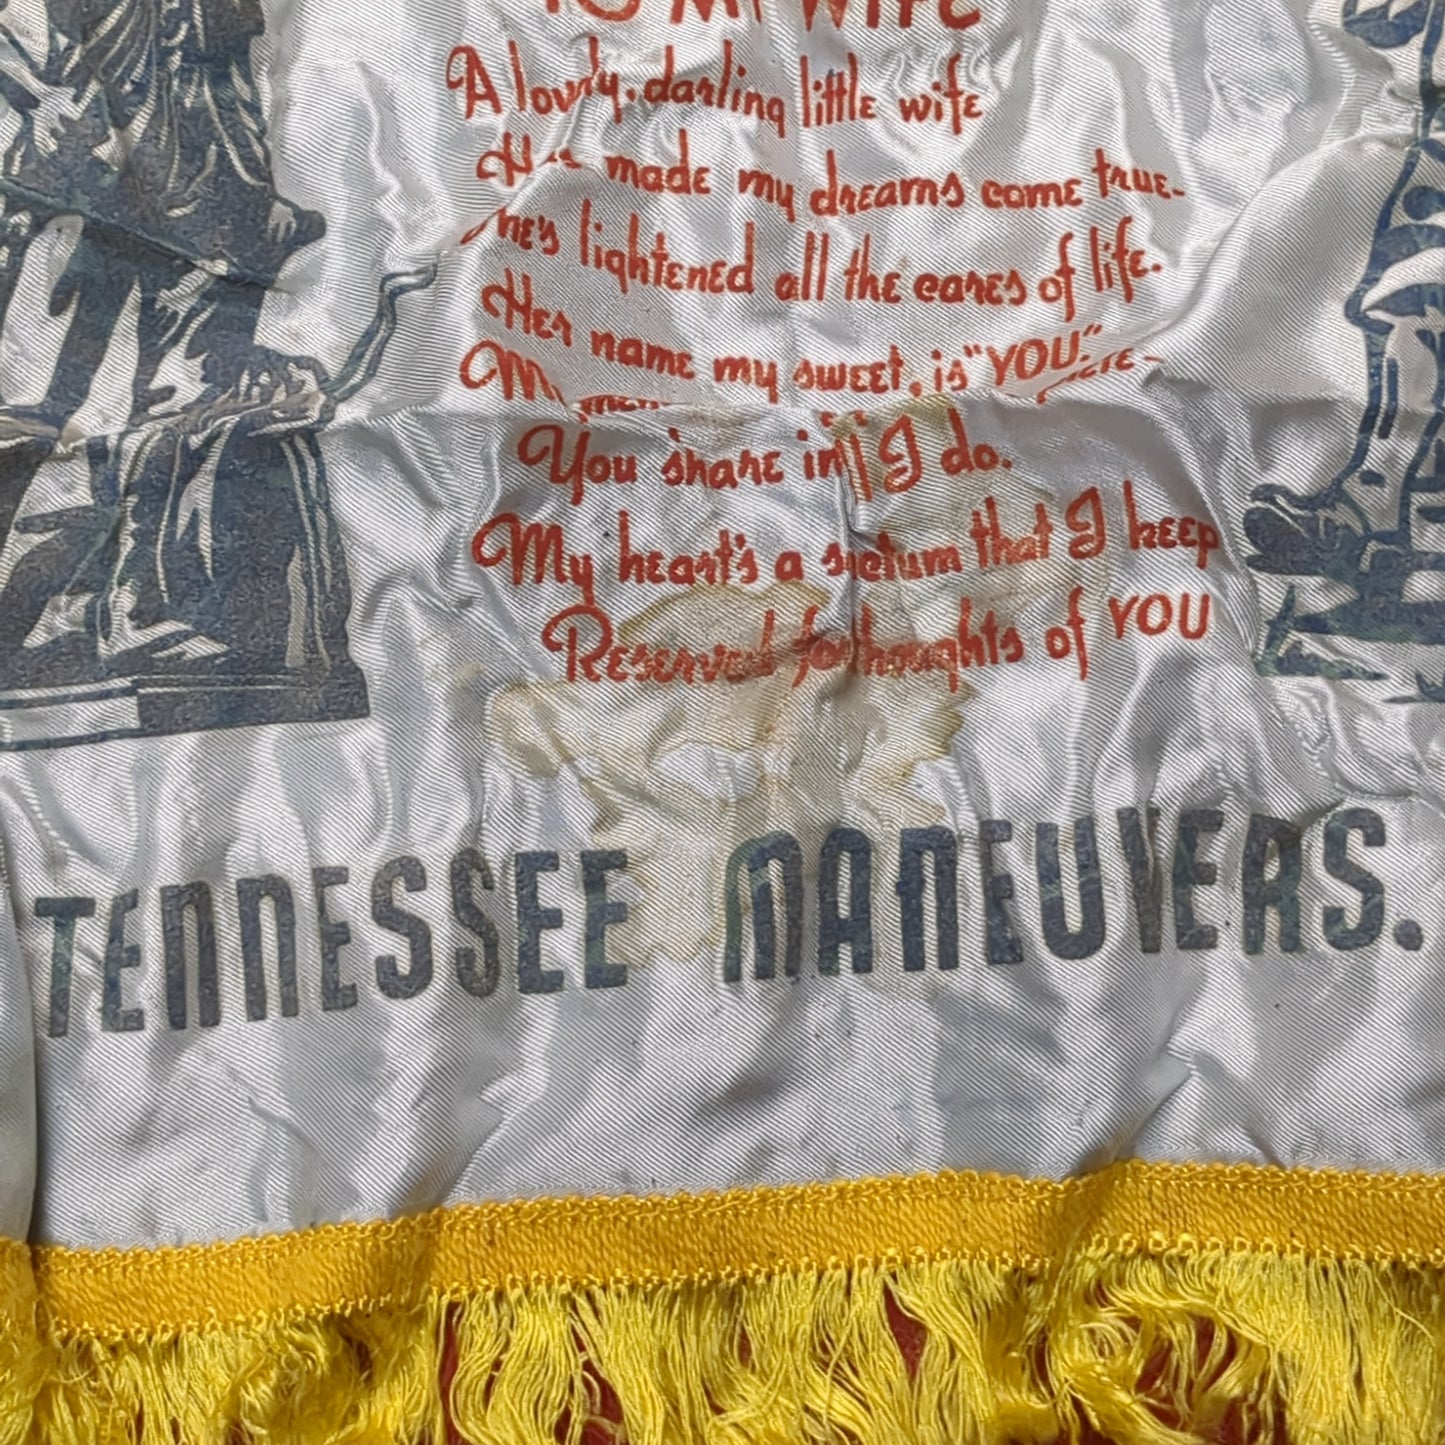 TO MY WIFE
A lovely, darling little wife
Has made my dreams come true-
She's lightened all the cares of life.
Her name my sweet, is "YOU."
My
You share in I do.
My heart's a sictum that I keep
Reserved for thoughts of YOU
TENNESSEE MANEUVERS.